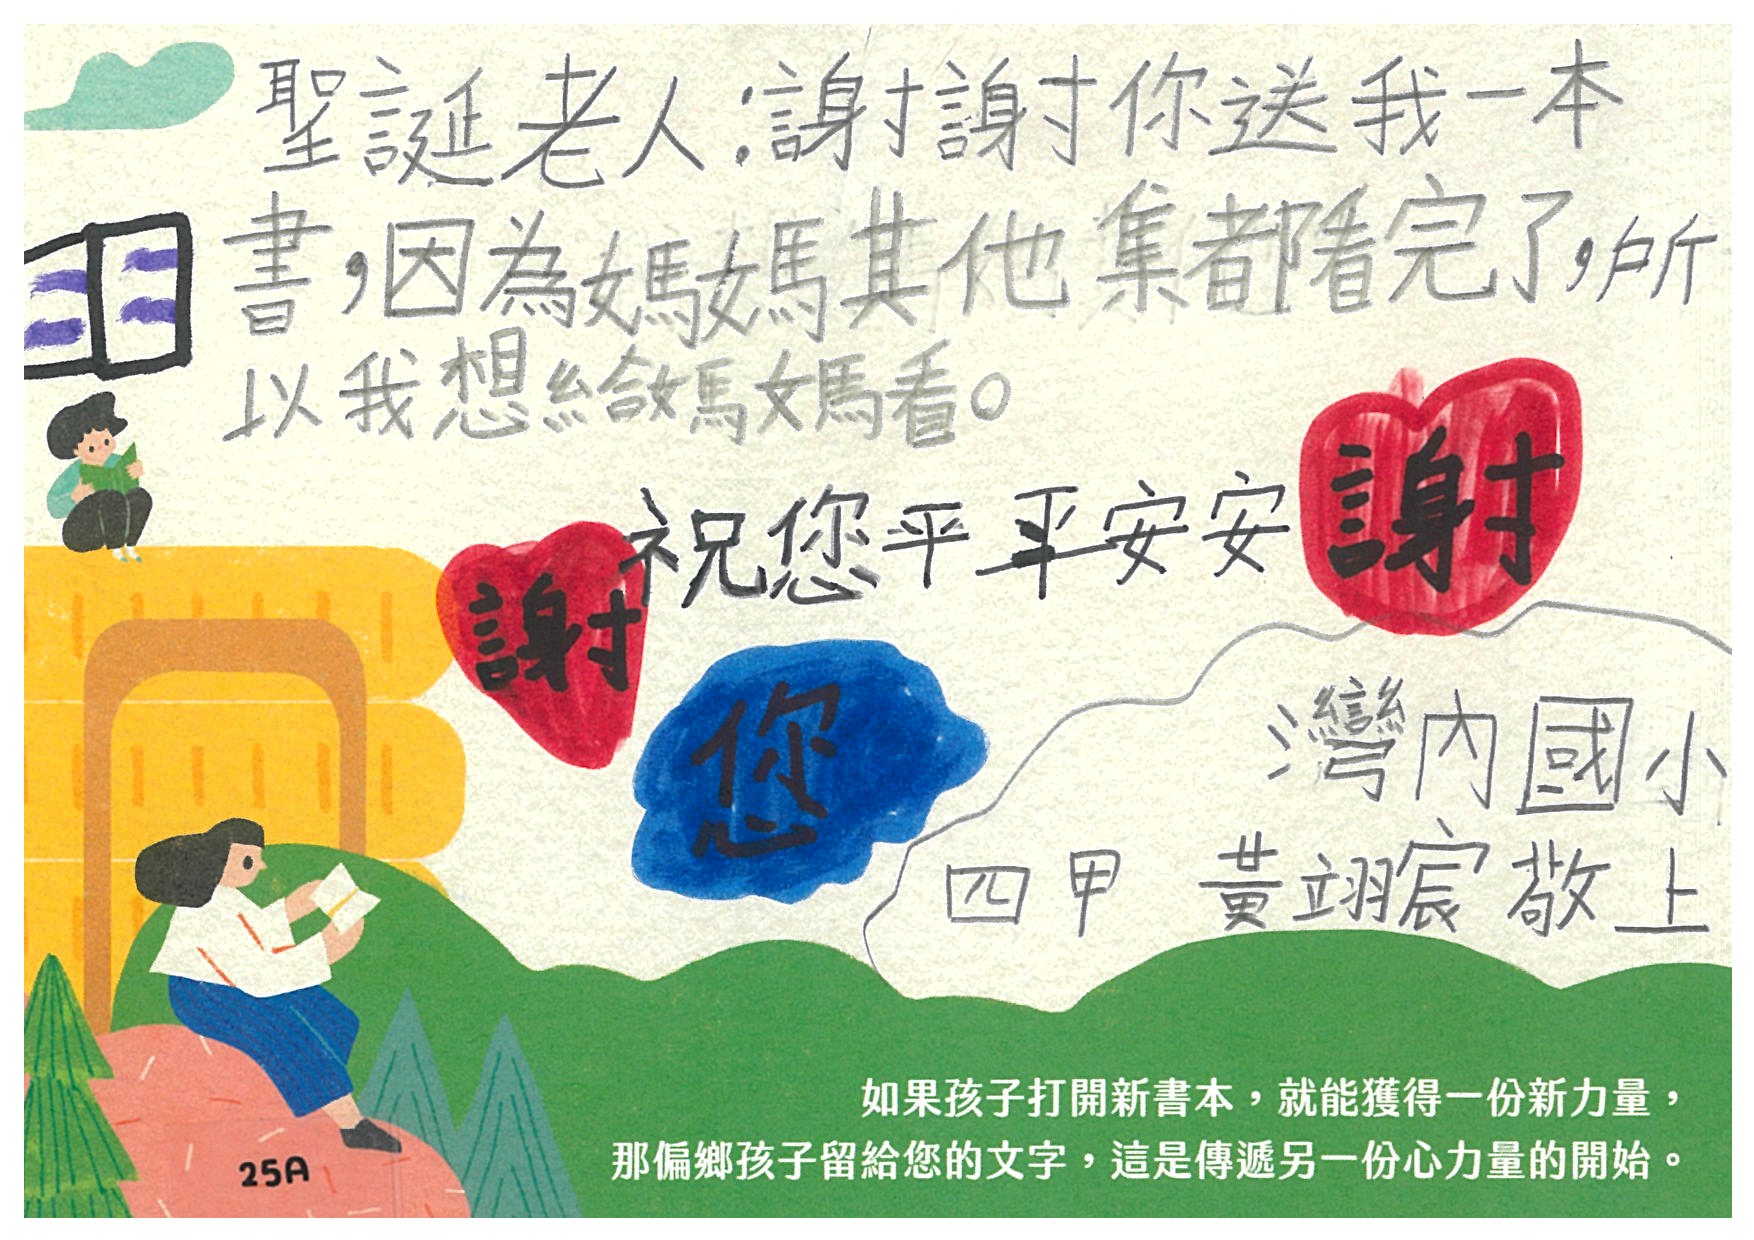 聖誕老人:謝謝你送我一本
書,因為媽媽其他集都看完了,所
以我想給媽媽看。
祝您平平安安
謝
謝
您
灣內國小
四甲 黃翊宸敬上
如果孩子打開新書本,就能獲得一份新力量,
那偏鄉孩子留給您的文字,這是傳遞另一份心力量的開始。
25A